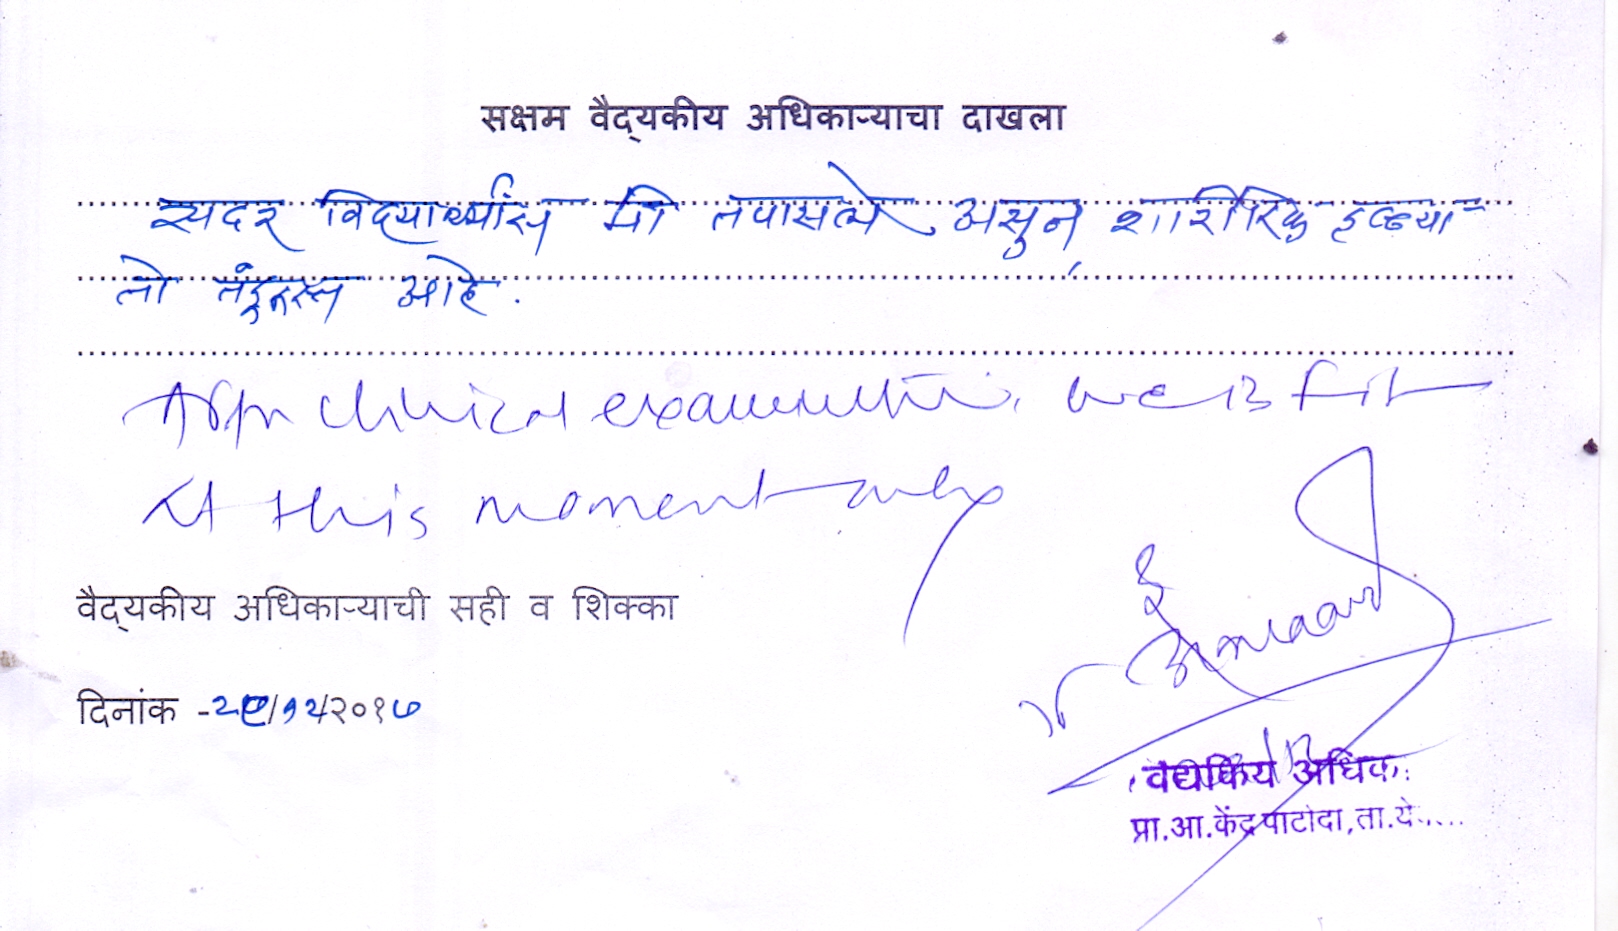 सक्षम वैद्यकीय अधिकाऱ्याचा दाखला
सदर विद्यार्थ्यांस मी तपासले असुन, शारिरिक दृष्ट्या
तो तंदुरुस्त आहे.
clinical examination, he is fit
at this moment only
वैद्यकीय अधिकाऱ्याची सही व शिक्का
दिनांक -२९/१२/२०१७
वैद्यकिय अधिक
प्रा.आ.केंद्र पाटोदा, ता.ये